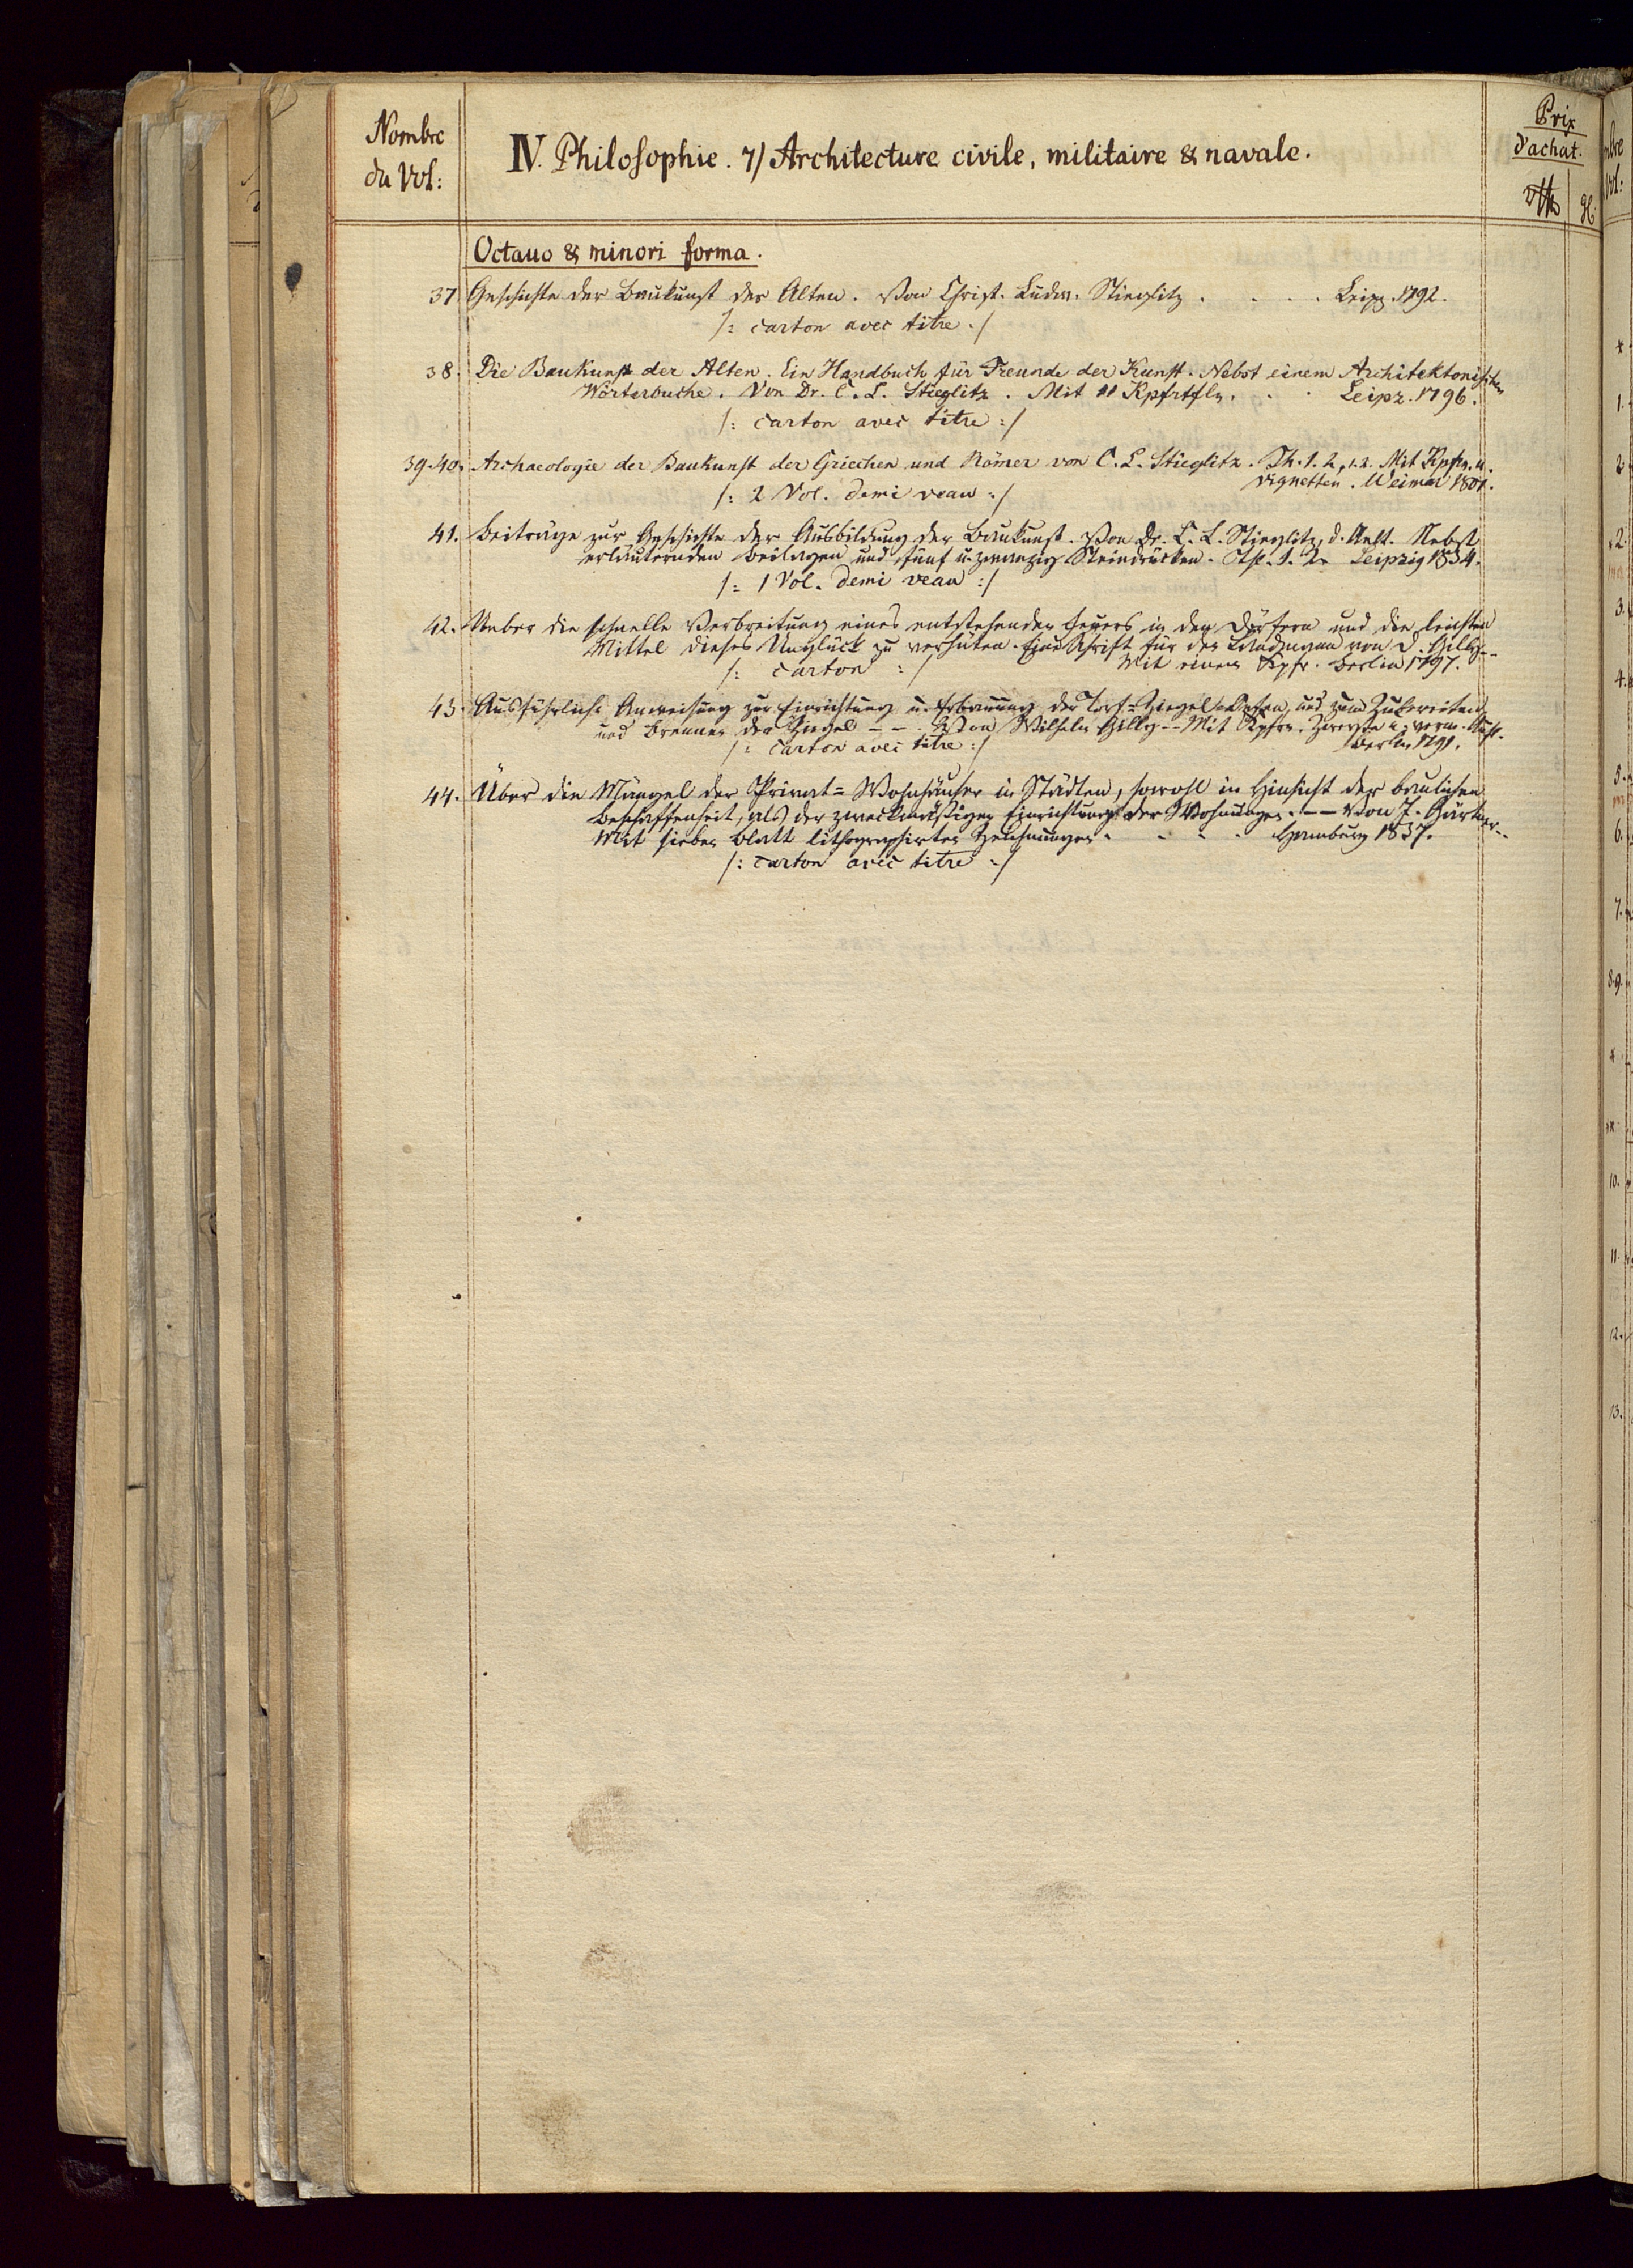 Nombre
du Vol:
IV. Philosophie. 7/ Architecture civile, militaire & navale.
Prix
d'achat.
Octauo & minori forma.
37 Geschichte der Baukunst der Alten. Von Christ. Ludw. Stieglitz . . . . Leipz. 1792.
/: carton avec titre :/
38. Die Baukunst der Alten. Ein Handbuch für Freunde der Kunst. Nebst einem Architektonischen
Wörterbuche. Von Dr. C. L. Stieglitz. Mit 11 Kpfrtfln. . . Leipz. 1796.
/: carton avec titre :/
39-40. Archaeologie der Baukunst der Griechen und Römer von C. L. Stieglitz. Th. 1. 2, 1.2. Mit Kpfrn. u.
Vignetten. Weimar 1801.
/: 2 Vol. demi veau :/
41. Beiträge zur Geschichte der Ausbildung der Baukunst. Von Dr. C. L. Stieglitz, d. Aelt. Nebst
erläuternden Beilagen und fünf u. zwanzig Steindrücken. Th. 1. 2. Leipzig 1834.
/: 1 Vol. demi veau :/
42. Ueber die schnelle Verbreitung eines entstehenden Feuers in den Dörfern und die leichsten
Mittel dieses Unglück zu verhüten. Eine Schrift für den Landmann von D. Gilly --
/: carton :/ Mit einem Kpfr. Berlin 1797.
43. Ausführliche Anweisung zur Einrichtung u. Erbauung der Torf-Ziegel-Oefen, und zum Zubereiten
und Brennen der Ziegel -- Von Wilhelm Gilly -- Mit Kpfrn. Zweyte u. verm. Aufl.
/: carton avec titre :/ Berlin 1791.
44. Über die Mängel der Privat-Wohnhäuser in Städten, sowohl in Hinsicht der baulichen
Beschaffenheit, als der zweckmäßigen Einrichtung der Wohnungen. -- Von J. Gärtner..
Mit sieben Blatt lithographirten Zeichnungen . . . . Hamburg 1837.
/: carton avec titre :/